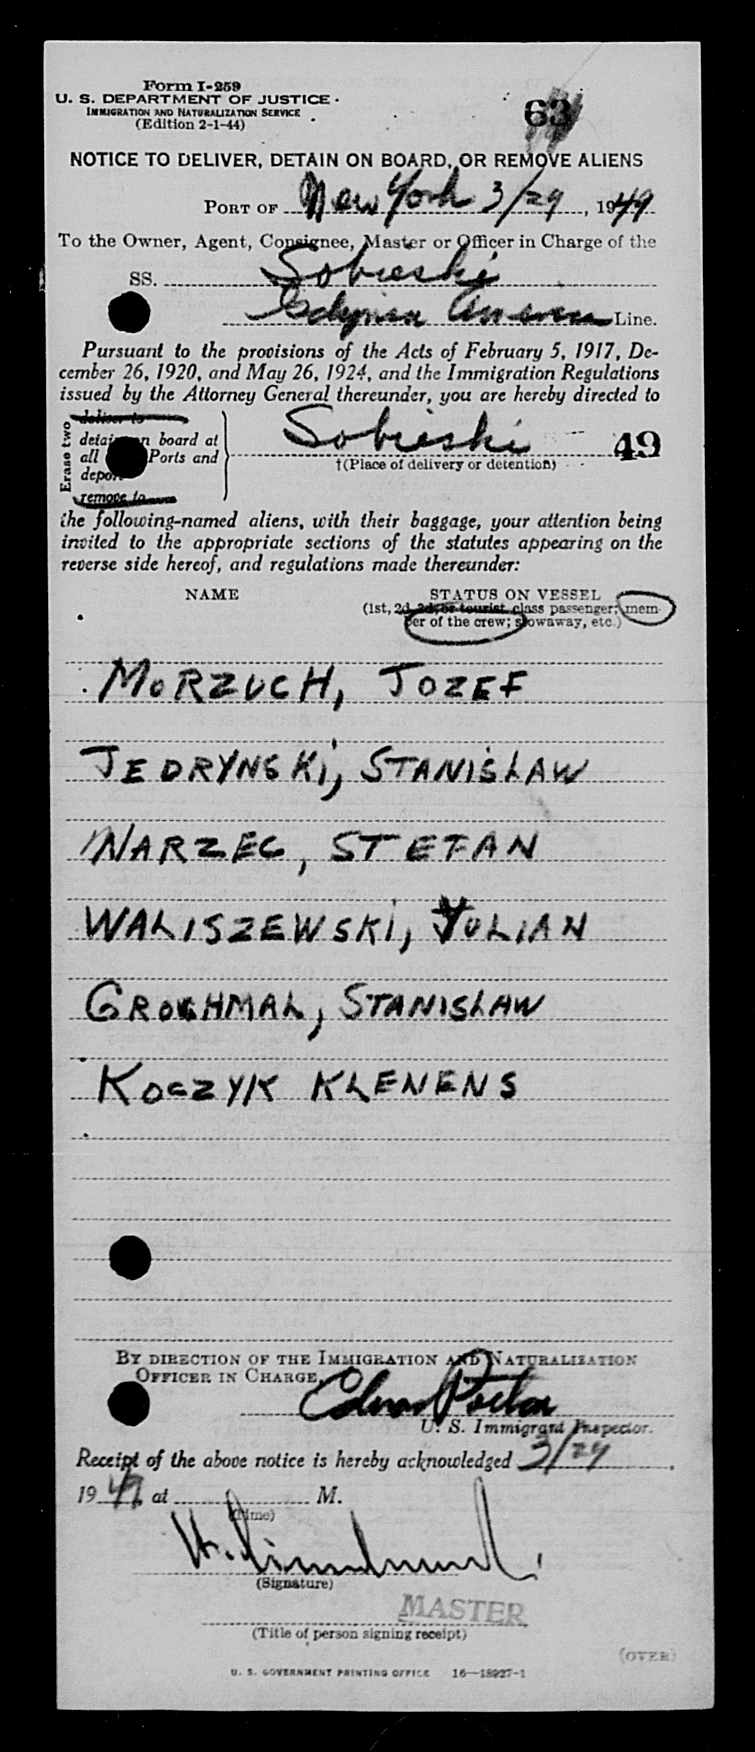 Form I-259
U. S. DEPARTMENT OF JUSTICE
IMMIGRATION AND NATURALIZATION SERVICE
(Edition 2-1-44)
63
NOTICE TO DELIVER, DETAIN ON BOARD, OR REMOVE ALIENS
PORT OF New York 3/29, 1949
To the Owner, Agent, Consignee, Master or Officer in Charge of the
SS. Sobieski
Gdynia America Line.
Pursuant to the provisions of the Acts of February 5, 1917, De-
cember 26, 1920, and May 26, 1924, and the Immigration Regulations
issued by the Attorney General thereunder, you are hereby directed to
Erase two
deliver to
detain on board at
all Ports and
deport
remove to
Sobieski 49
†(Place of delivery or detention)
the following-named aliens, with their baggage, your attention being
invited to the appropriate sections of the statutes appearing on the
reverse side hereof, and regulations made thereunder:
NAME STATUS ON VESSEL
(1st, 2d, 3d, or tourist class passenger; mem-
ber of the crew; stowaway, etc.)
MORZUCH, JOZEF
JEDRYNSKi, STANISLAW
NARZEC, STEFAN
WALISZEWSKi, JULIAN
GROCHMAL, STANISLAW
KOCZYK KLENENS
BY DIRECTION OF THE IMMIGRATION AND NATURALIZATION
OFFICER IN CHARGE,
U. S. Immigrant Inspector.
Receipt of the above notice is hereby acknowledged 3/29
1949, at M.
(Time)
(Signature)
MASTER
(Title of person signing receipt)
(OVER)
U. S. GOVERNMENT PRINTING OFFICE 16—18927-1